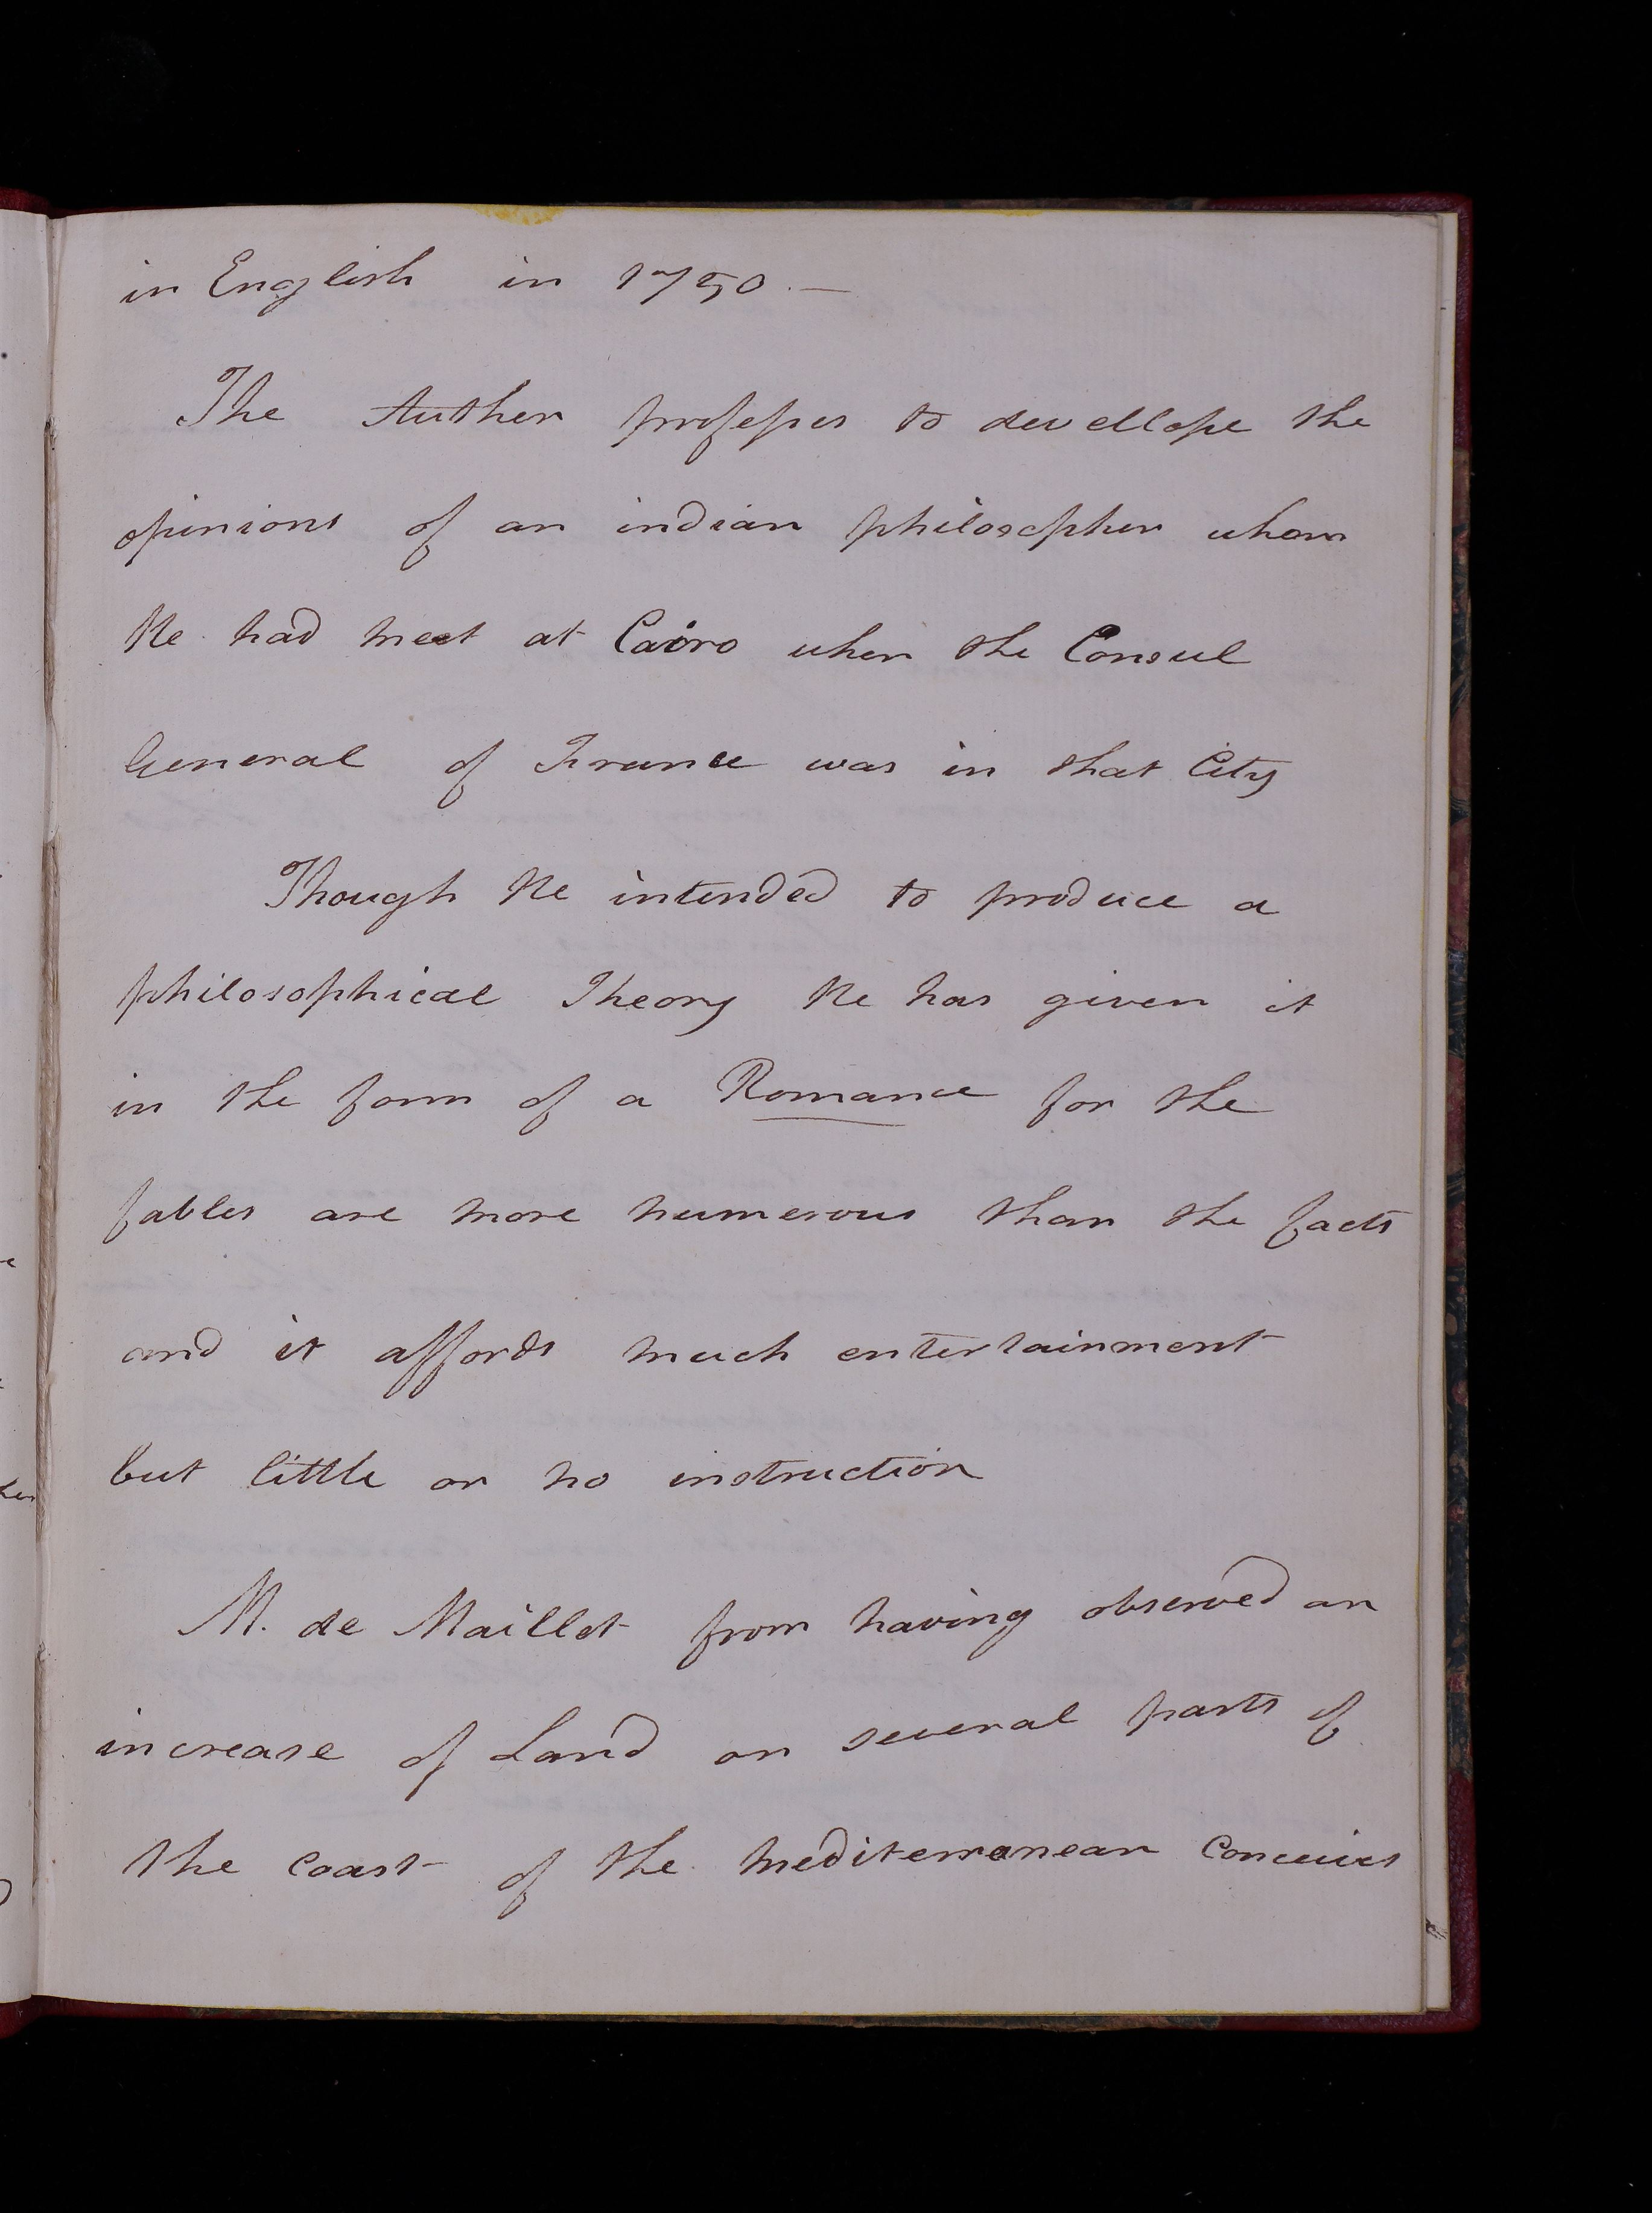 in English in 1750. —
The Auther professes to devellope the
opinions of an indian philosopher whom
He had meet at Cairo when the Consul
General of France was in that City
Though He intended to produce a
philosophical Theory He has given it
in the form of a Romance for the
fables are more numerous than the facts
and it affords much entertainment
but little or no instruction
M. de Maillet from having observed an
increase of Land on several parts of
the coast of the mediterranean conceives